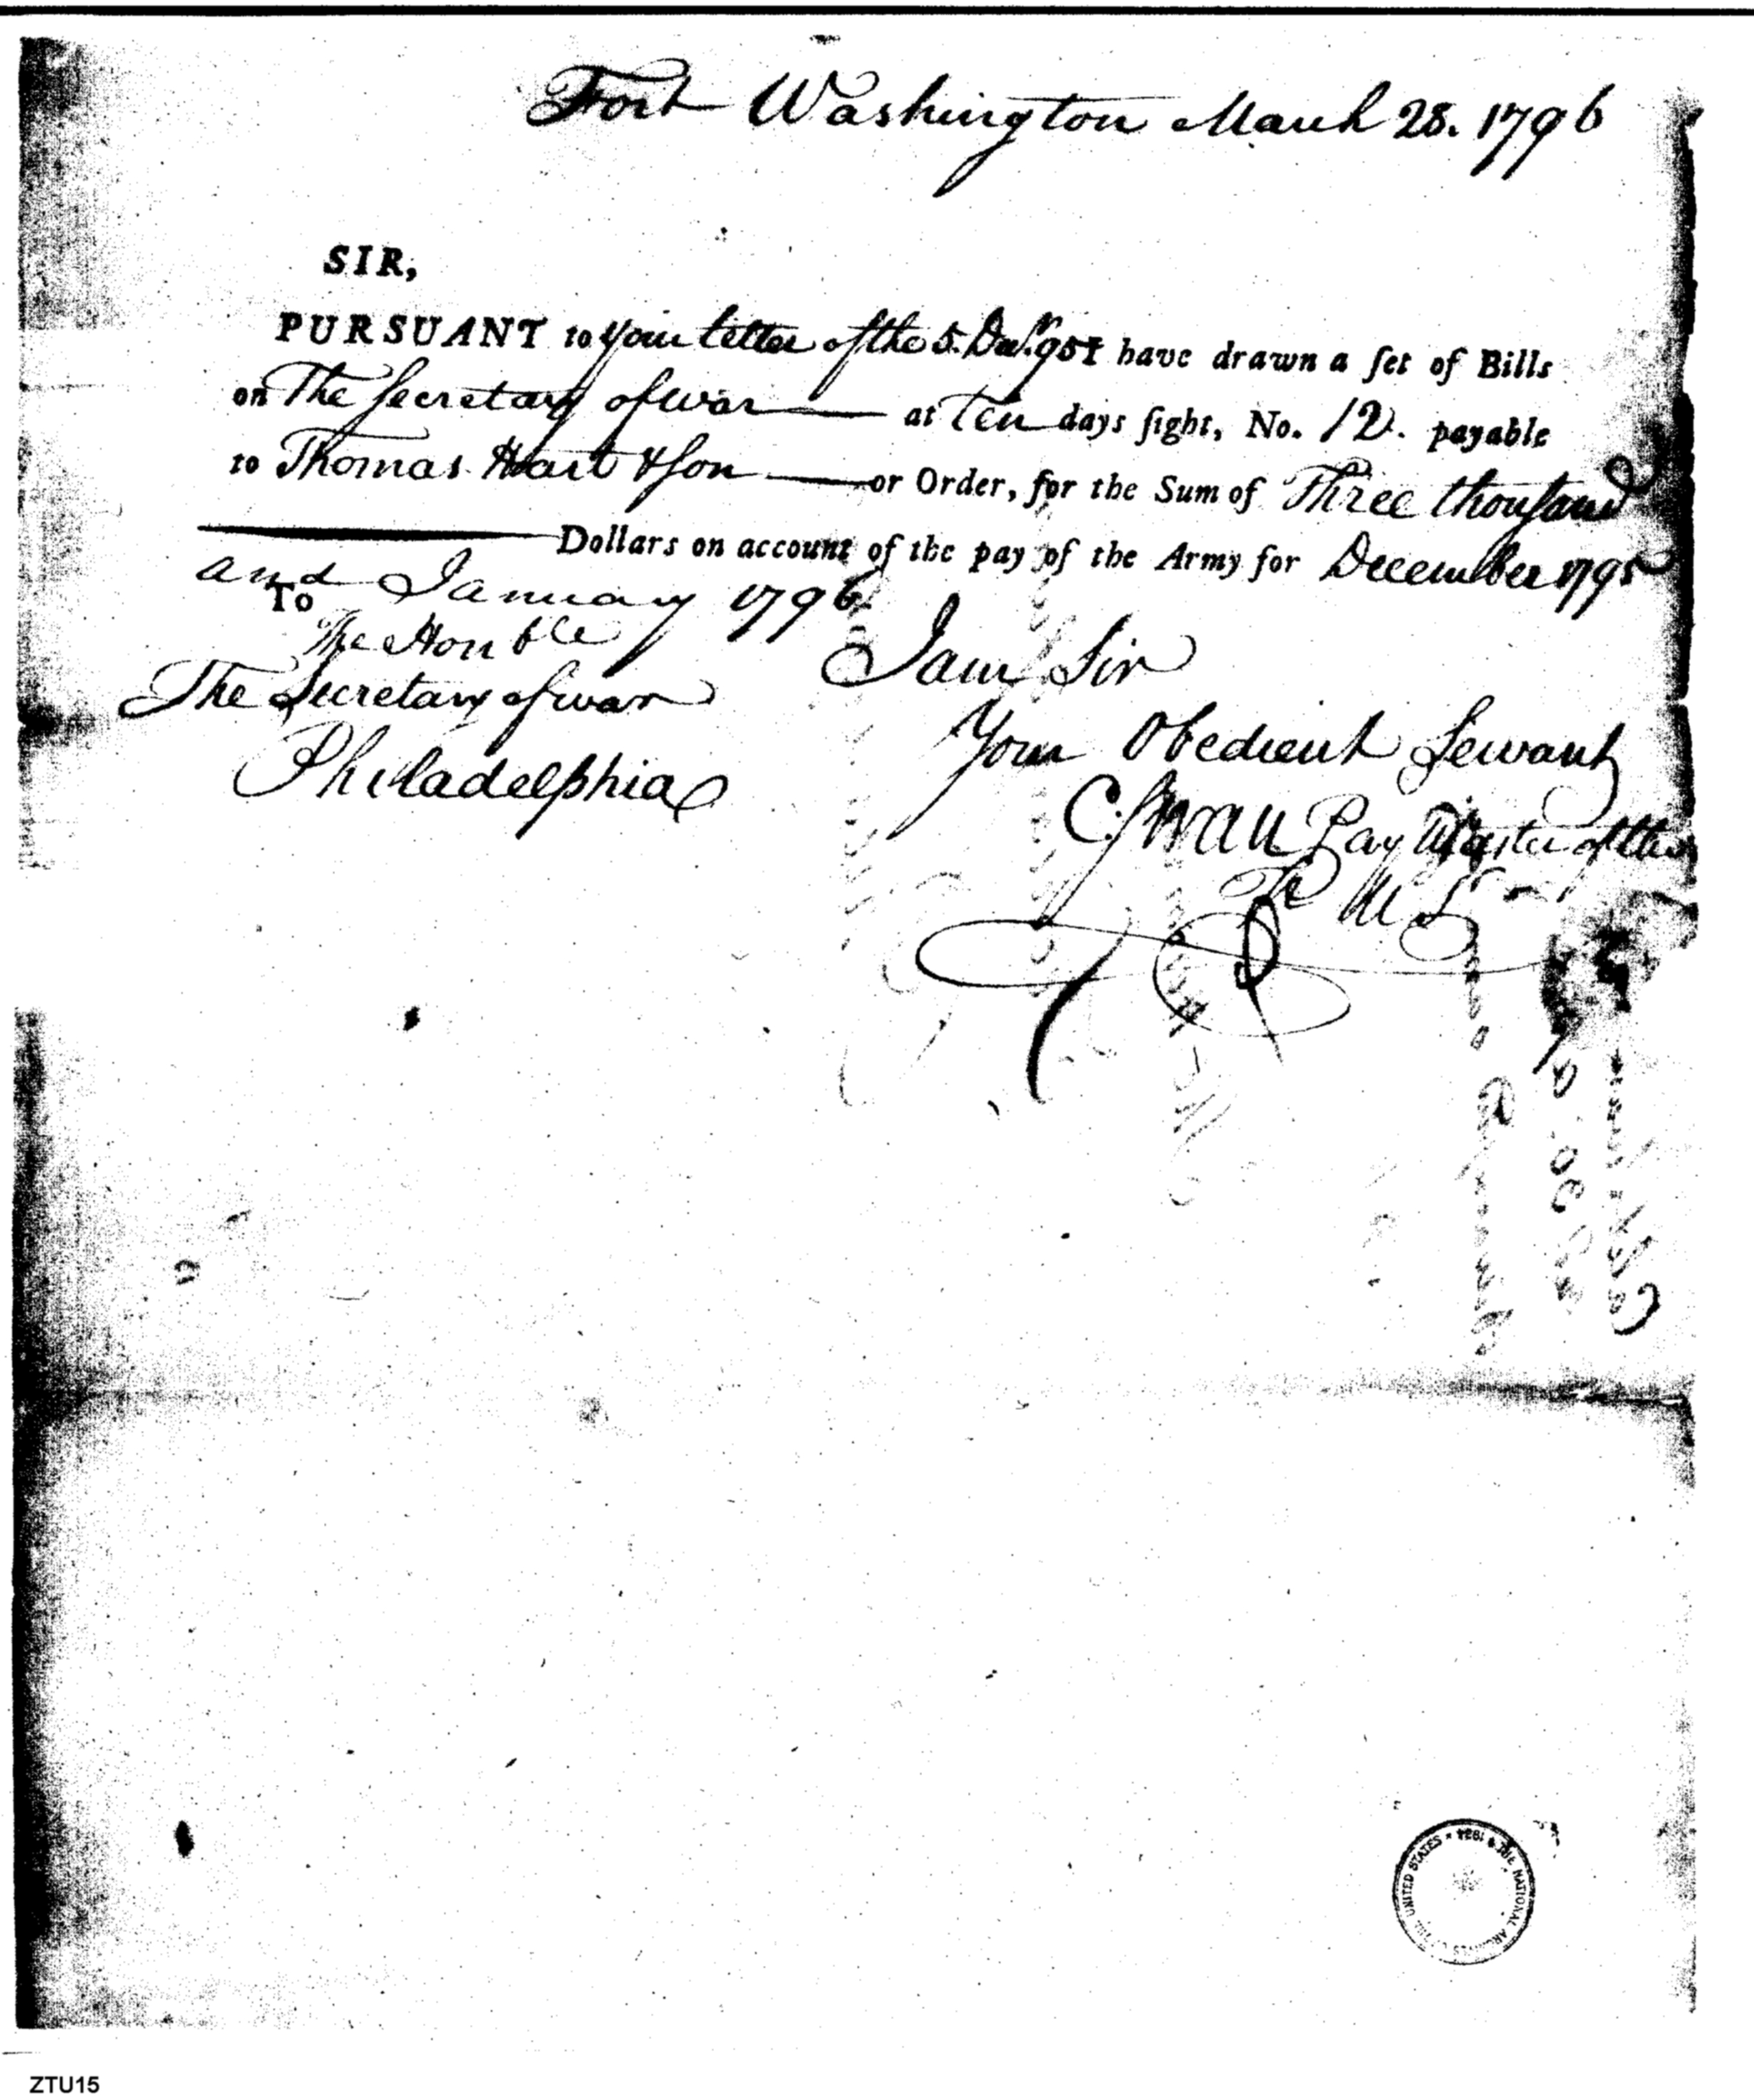 Fort Washington March 28. 1796
SIR,
PURSUANT to your letter of the 5. Decr. 95 I have drawn a ſet of Bills
on The Secretary of war at Ten days ſight, No. 12. payable
to Thomas Hart & Son or Order, for the Sum of Three thousand
Dollars on account of the pay of the Army for December 1795
and January 1796
To
The Honble
The Secretary of war
Philadelphia
I am Sir
Your Obedient Servant
C. Swan Pay Master of the
Tr U S
THE NATIONAL ARCHIVES OF THE UNITED STATES * 1934 *
ZTU15